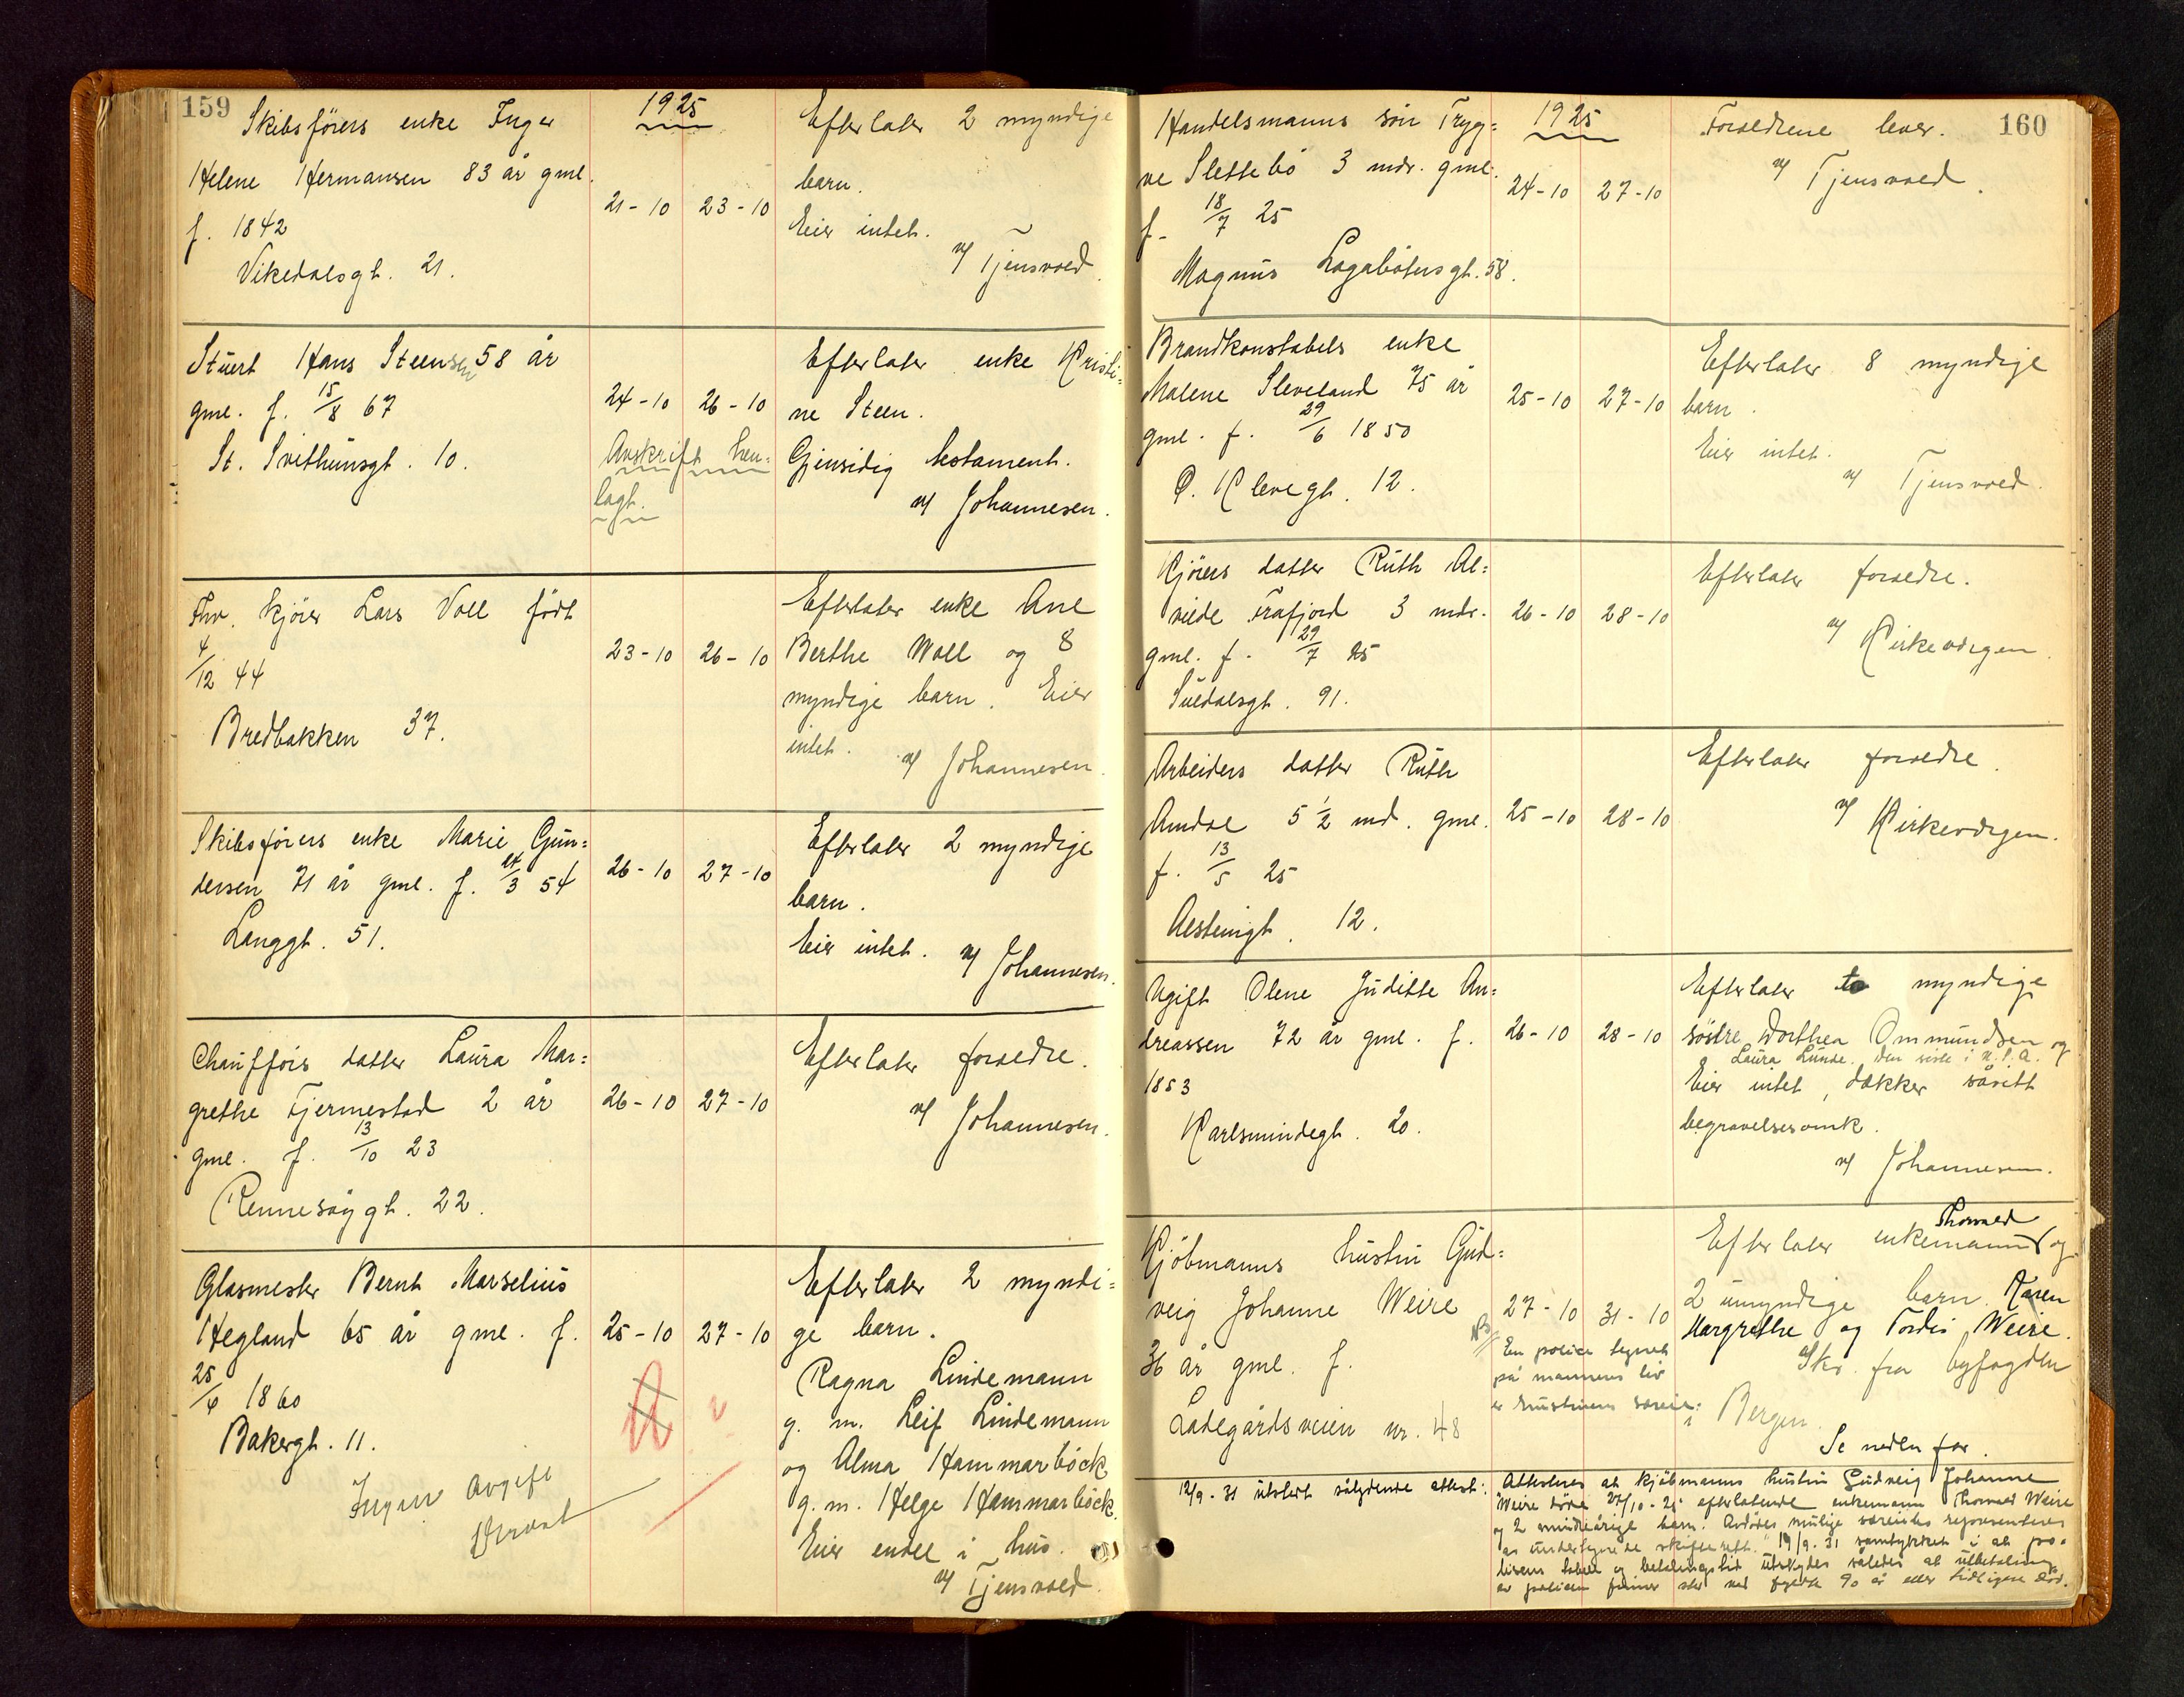 159
1925
Skibsförers enke Inger
Helene Hermansen 83 år gml.
f. 1842
Vikedalsgt. 21.
21-10 23-10
Efterlater 2 myndige
barn.
Eier intet.
v/ Tjensvold.
Stuert Hans Steensen 58 år
gml. f. 15/8 67
St. Svithunsgt. 10.
24-10 26-10
Avskrift hen=
lagt.
Efterlater enke Kristi=
ne Steen.
Gjensidig testament.
v/ Johannesen.
Fhv. kjörer Lars Voll födt
4/12 44
Bredbakken 37.
23-10 26-10
Efterlater enke Ane
Berthe Woll og 8
myndige barn. Eier
intet.
v/ Johannesen.
Skibsförers enke Marie Gun=
dersen 71 år gml. f. 24/3 54
Langgt. 51.
26-10 27-10
Efterlater 2 myndige
barn.
Eier intet. v/ Johannesen.
Chaufförs datter Laura Mar=
grethe Fjermestad 2 år
gml. f. 13/10 23
Rennesöygt. 22.
26-10 27-10
Efterlater foreldre.
v/ Johannesen.
Glasmester Bernt Marselius
Hegland 65 år gml. f.
25/6 1860
Bakergt. 11.
Ingen avgift
25-10 27-10
Efterlater 2 myndi=
ge barn.
Ragna Lindemann
g. m. Leif Lindemann
og Alma Hammarböck
g.m. Helge Hammarböck.
Eier endel i hus.
v/ Tjensvold.
160
1925
Handelsmanns sön Tryg=
ve Slettebö 3 mdr. gml.
f. 18/7 25
Magnus Lagabötersgt. 58.
24-10 27-10
Foreldrene lever.
v/ Tjensvold.
Brandkonstabels enke
Malene Sleveland 75 år
gml. f. 29/6 1850
P. Klevegt. 12.
25-10 27-10
Efterlater 8 myndige
barn.
Eier intet.
v/ Tjensvold.
Kjörers datter Ruth Al=
vilde Frafjord 3 mdr.
gml. f. 29/7 25
Suldalsgt. 91.
26-10 28-10
Efterlater foreldre.
v/ Kirkevergen.
Arbeiders datter Ruth
Amdal 5 1/2 md. gml.
f. 13/5 25
Alsteingt. 12.
25-10 28-10
Efterlater foreldre.
v/ Kirkevergen.
Ugift Olene Juditte An=
dreassen 72 år gml. f.
1853
Karlsmindegt. 20.
26-10 28-10
Efterlater to myndige
söstre Dorthea Ommundsen og
Laura Lunde. Den siste i U.S.A.
Eier intet, dækker såvitt
begravelsesomk.
v/ Johannesen.
Kjöbmanns hustru Gud=
veig Johanne Weire
36 år gml. f.
Ladegårdsveien nr. 48
27-10 31-10
NB
En police tegnet
på mannens liv
er hustruens særeie.
Thorvald
Efterlater enkemann og
2 umyndige barn. Karen
Margrethe og Tordis Weire.
Skr. fra byfogden
i Bergen.
Se nedenfor.
12/9-31 utstedt sålydende attest:
Attesteres at kjöbmanns hustru Gudveig Johanne
Weire döde 27/10-25 efterlatende enkemann Thorvald Weire
og 2 mindreårige barn. Avdödes mulige særeie representeres
av undertegnede skifterett. 19/9-31 samtykket i at po=
lisens tabell og betalingstid utskydes således at utbetaling
av policen finner sted ved fylte 90 år eller tidligere död.